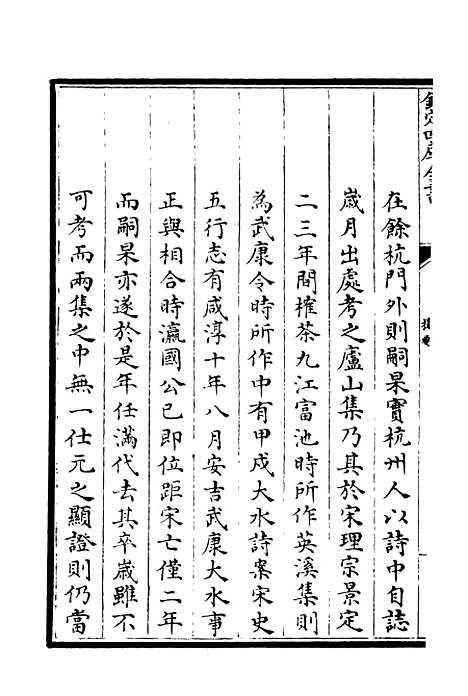 欽定四庫全書
提要
在餘杭門外則嗣杲實杭州人以詩中自誌
歲月出處考之廬山集乃其於宋理宗景定
二三年間榷茶九江富池時所作英溪集則
為武康令時所作中有甲戌大水詩案宋史
五行志有咸淳十年八月安吉武康大水事
正與相合時瀛國公已即位距宋亡僅二年
而嗣杲亦遂於是年任滿代去其卒歲雖不
可考而兩集之中無一仕元之顯證則仍當